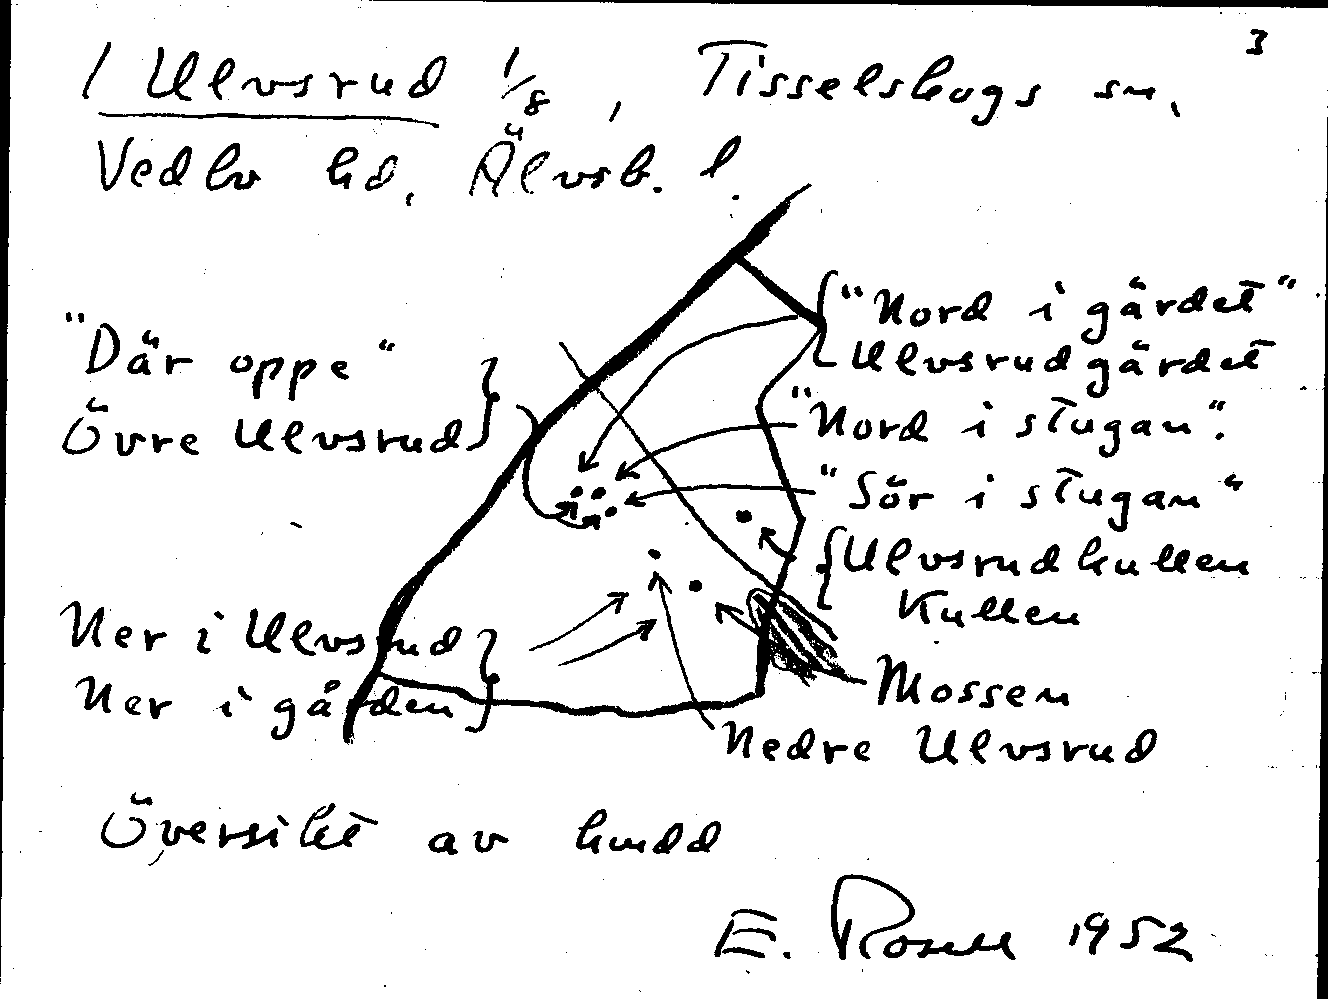 3
1 Ulvsrud 1/8, Tisselskogs sn,
Vedbo hd, Älvsb. l.
"Nord i gärdet"
Ulvsrudgärdet
"Där oppe"
Övre Ulvsrud
"Nord i stugan".
"Sör i stugan"
Ulvsrudkullen
Kullen
Ner i Ulvsrud
Ner i gården
Mossen
Nedre Ulvsrud
Översikt av
E. Rosell 1952